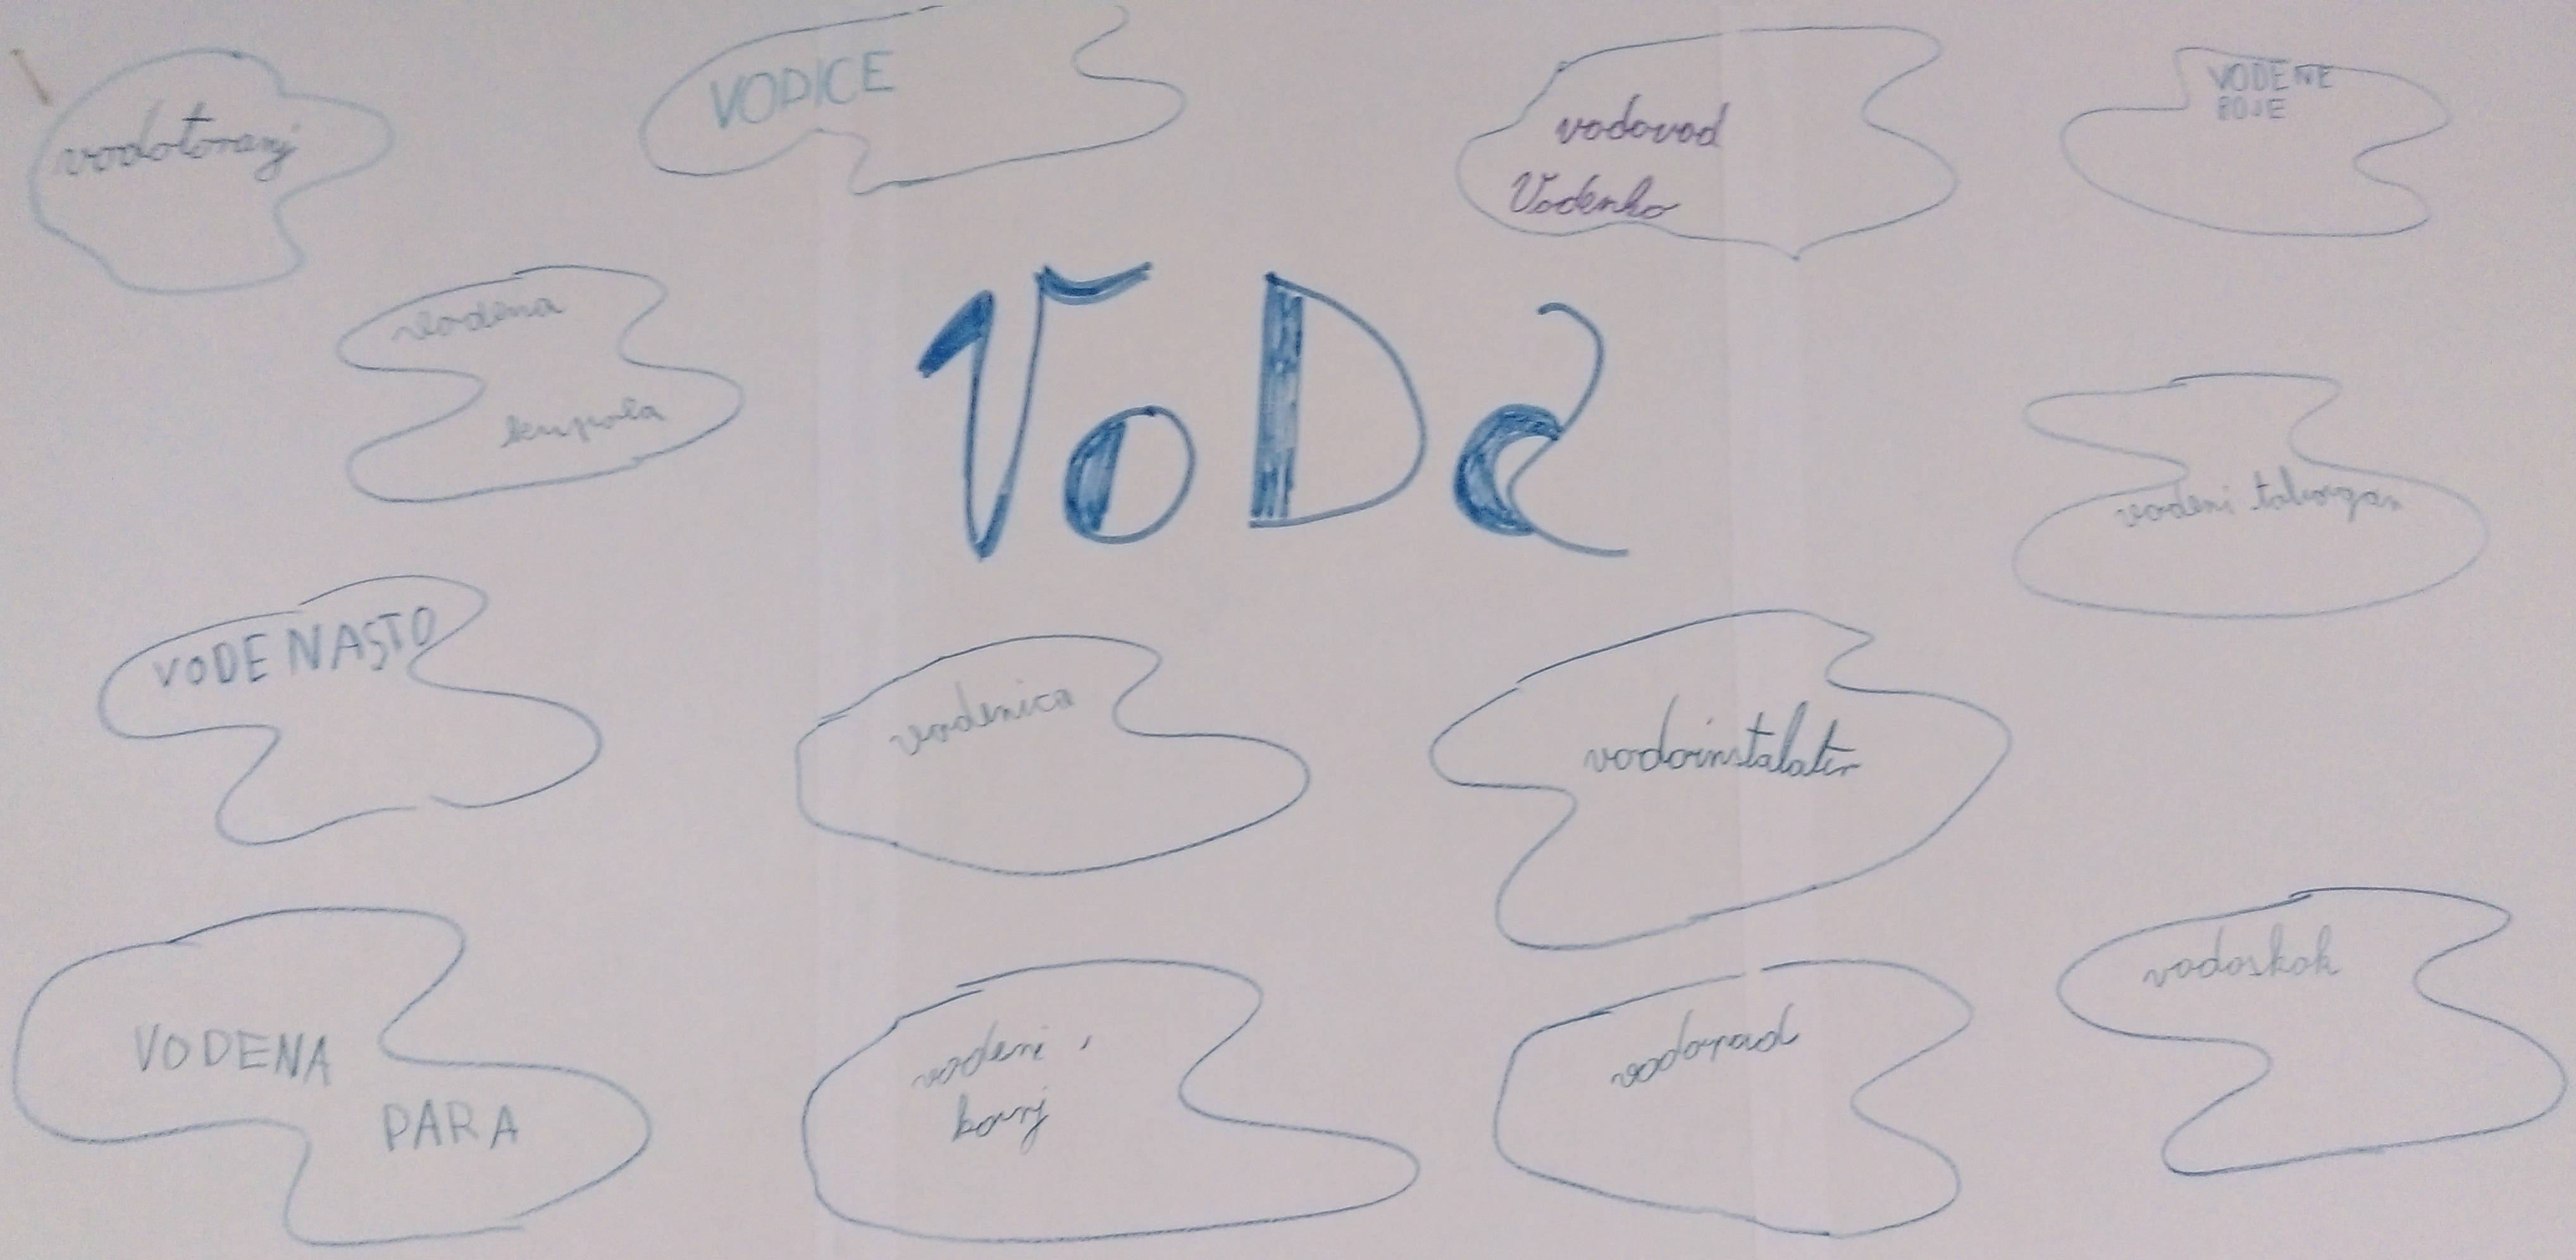 vodotoranj
VODICE
vodovod
Vodenko
VODENE
BOJE
vodena
kupola
VoDa
vodeni tobogan
VODENASTO
vodenica
vodoinstalater
VODENA
PARA
vodeni
konj
vodopad
vodoskok